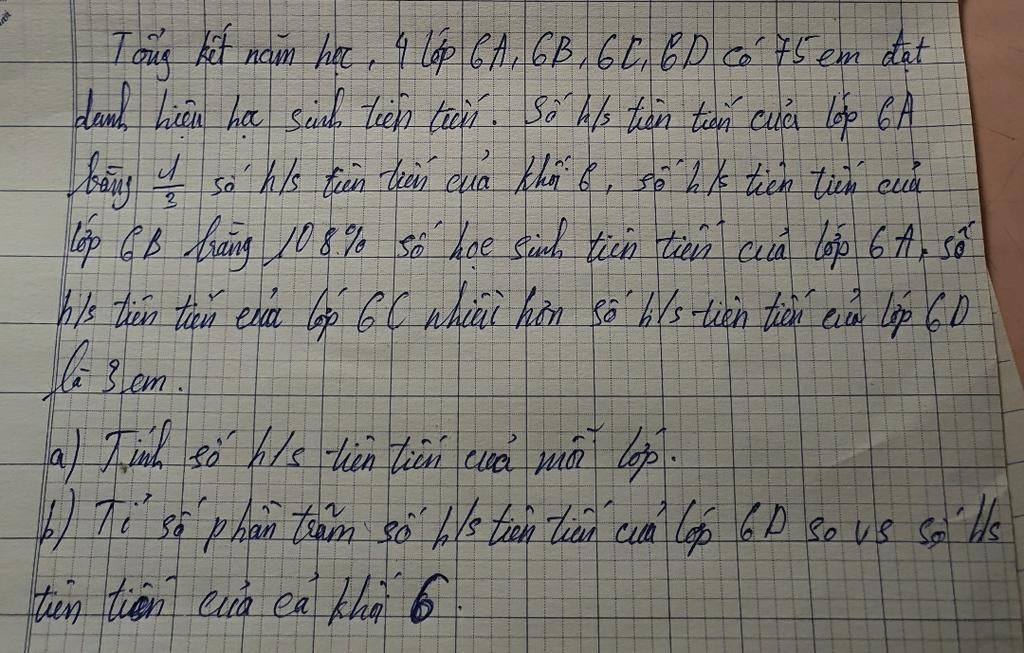 Tổng kết năm học, 4 lớp 6A, 6B, 6C, 6D có 75 em đạt
danh hiệu học sinh tiên tiến. Số h/s tiên tiến của lớp 6A
bằng 1/3 số h/s tiên tiến của khối 6, số h/s tiên tiến của
lớp 6B bằng 108% số học sinh tiên tiến của lớp 6A, số
h/s tiên tiến của lớp 6C nhiều hơn số h/s tiên tiến của lớp 6D
là 3 em.
a) Tính số h/s tiên tiến của mỗi lớp.
b) Tỉ số phần trăm số h/s tiên tiến của lớp 6D so vs số h/s
tiên tiến của cả khối 6.